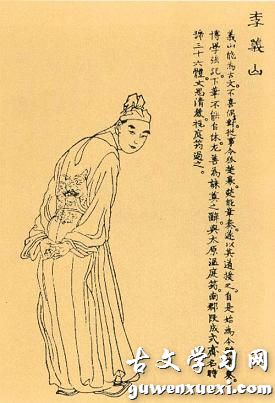 李義山
義山能為古文不喜偶對從事令狐楚幕楚能章奏遂以其道授之自是始為今奏
博學強記下筆不能自休尤善為誄奠之辭與太原溫庭筠南郡段成式齊名時
號三十六體文思清麗視庭筠過之。
古文学习网
guwenxuexi.com